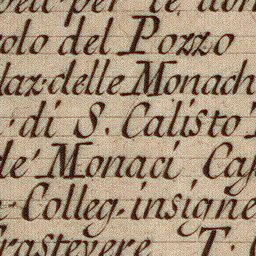 per le don
olo del Pozzo
laz. delle Monach
di S. Calisto
de' Monaci Cas
Colleg. insigne
rastevere T.